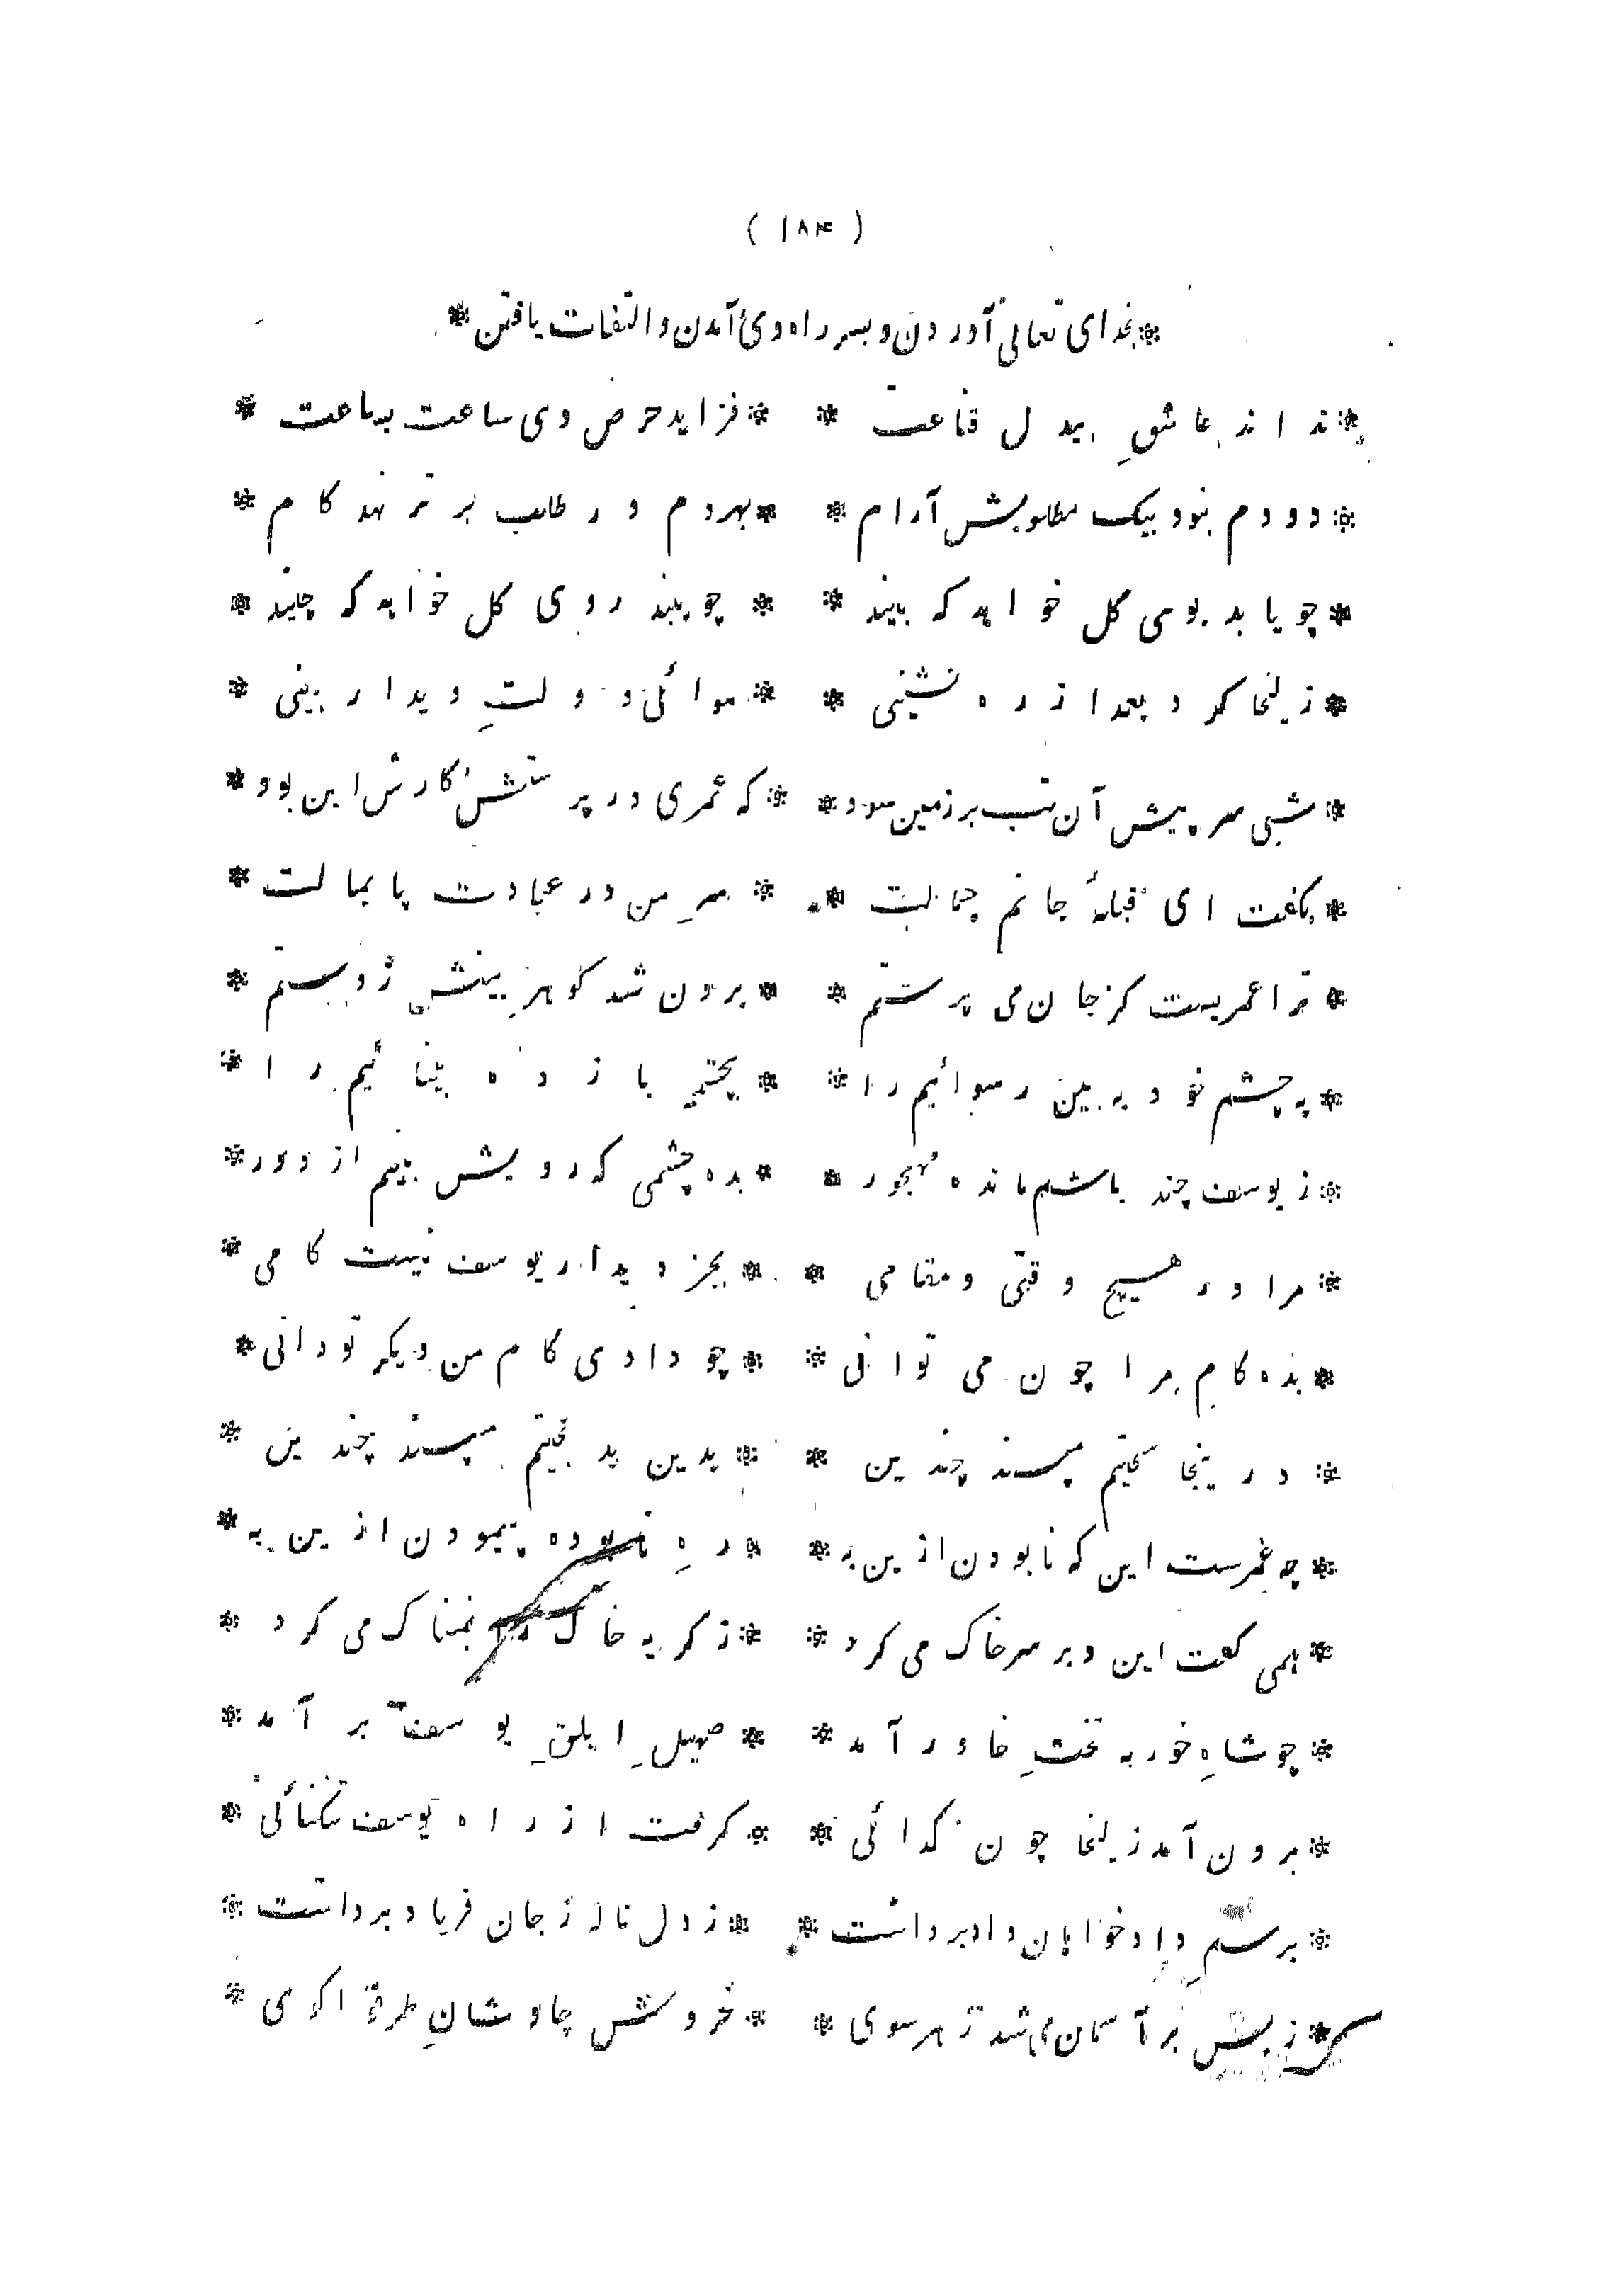 ( ۱۸۴ )
* بخدای تعالی آوردن و بسر راه وی آمدن و التفات یافتن *
* نداند عاشقِ بیدل قناعت * * فزاید حرص وی ساعت بساعت *
* دو دم نبود بیک مطلوبش آرام * * بهر دم در طلب برتر نهد کام *
* چو یابد بوی کل خواهد که بیند * * چو بیند روی کل خواهد که چیند *
* زلیخا کرد بعد از ره نشینی * * هوائی دولتِ دیدار بینی *
* شبی سر پیش آن بت بر زمین سود * * که عمری در پرستش کارش این بود *
* بکفت ای قبلهٔ جانم جمالت * * سرِ من در عبادت پایمالت *
* ترا عمریست کز جان می پرستم * * برون شد کوهرِ بینش ز دستم *
* به چشم خود به بین رسوائیم را * * بچشمِ باز ده بینائیم را *
* ز یوسف چند باشم مانده مهجور * * بده چشمی که رویش بینم از دور *
* مرا در هیچ وقتی و مقامی * * بجز دیدار یوسف نیست کامی *
* بده کام مرا چون می توانی * * چو دادی کام من دیکر تو دانی *
* درینجا سختیم مپسند چندین * * بدین بد بختیم مپسند چندین *
* چه عمرست این که نابودن ازین به * * رهِ نابوده پیمودن ازین به *
* همی کفت این و بر سر خاک می کرد * * ز کریه خاک را نمناک می کرد *
* چو شاهِ خور به تختِ خاور آمد * * صهیلِ ابلقِ یوسف بر آمد *
* برون آمد زلیخا چون کدائی * * کرفت از راه یوسف تنکنائی *
* برسمِ دادخواهان داد برداشت * * ز دل ناله ز جان فریاد برداشت *
* ز بس بر آسمان می شد ز هر سوی * * خروش چاوشانِ طرقوا کوی *